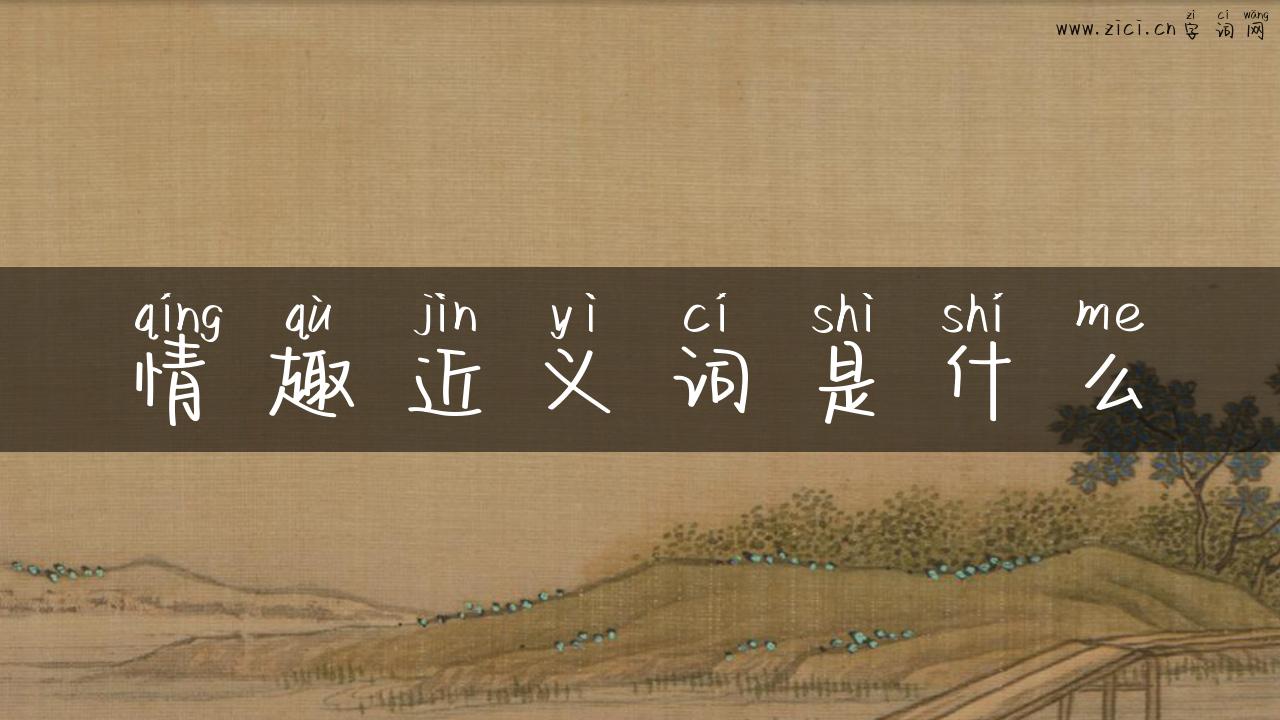 zì cí wǎng
www.zici.cn字词网
qíng qù jìn yì cí shì shí me
情趣近义词是什么